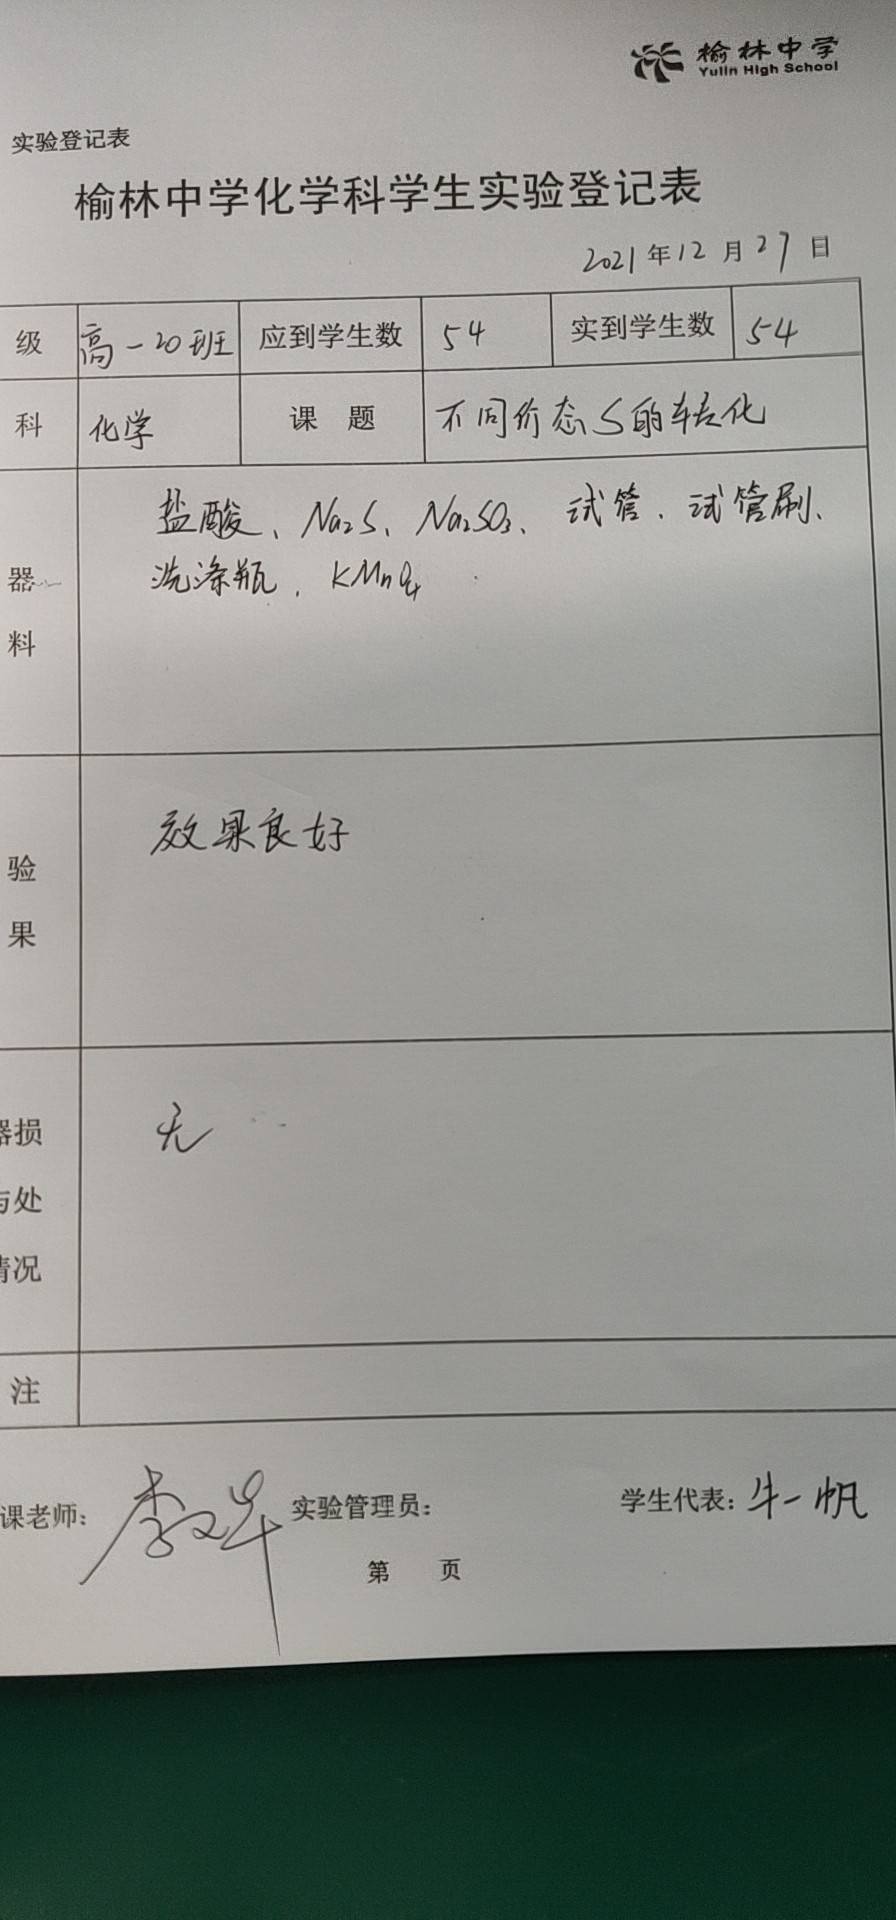 榆林中学
Yulin High School
实验登记表
榆林中学化学科学生实验登记表
2021年12月27日
级 高一20班 应到学生数 54 实到学生数 54
科 化学 课题 不同价态S的转化
盐酸、Na₂S、Na₂SO₃、试管、试管刷、
器 洗涤瓶、KMnO₄
料
效果良好
验
果
无
器损
与处
情况
注
课老师: 实验管理员: 学生代表: 牛一帆
第 页